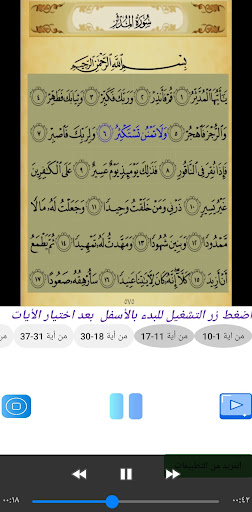 سُورَةُ المُدَّثِّرِ
بِسْمِ اللَّهِ الرَّحْمَٰنِ الرَّحِيمِ
يَا أَيُّهَا الْمُدَّثِّرُ ١ قُمْ فَأَنذِرْ ٢ وَرَبَّكَ فَكَبِّرْ ٣ وَثِيَابَكَ فَطَهِّرْ ٤
وَالرُّجْزَ فَاهْجُرْ ٥ وَلَا تَمْنُن تَسْتَكْثِرُ ٦ وَلِرَبِّكَ فَاصْبِرْ ٧
فَإِذَا نُقِرَ فِي النَّاقُورِ ٨ فَذَٰلِكَ يَوْمَئِذٍ يَوْمٌ عَسِيرٌ ٩ عَلَى الْكَافِرِينَ
غَيْرُ يَسِيرٍ ١٠ ذَرْنِي وَمَنْ خَلَقْتُ وَحِيدًا ١١ وَجَعَلْتُ لَهُ مَالًا
مَّمْدُودًا ١٢ وَبَنِينَ شُهُودًا ١٣ وَمَهَّدتُّ لَهُ تَمْهِيدًا ١٤ ثُمَّ يَطْمَعُ
أَنْ أَزِيدَ ١٥ كَلَّا إِنَّهُ كَانَ لِآيَاتِنَا عَنِيدًا ١٦ سَأُرْهِقُهُ صَعُودًا ١٧
٥٧٥
اضغط زر التشغيل للبدء بالأسفل بعد اختيار الأيات
من اية 1-10
من أية 11-17
من أية 18-30
من أية 31-37
المزيد من التطبيقات
٠٠:١٨
٠٠:٤٣